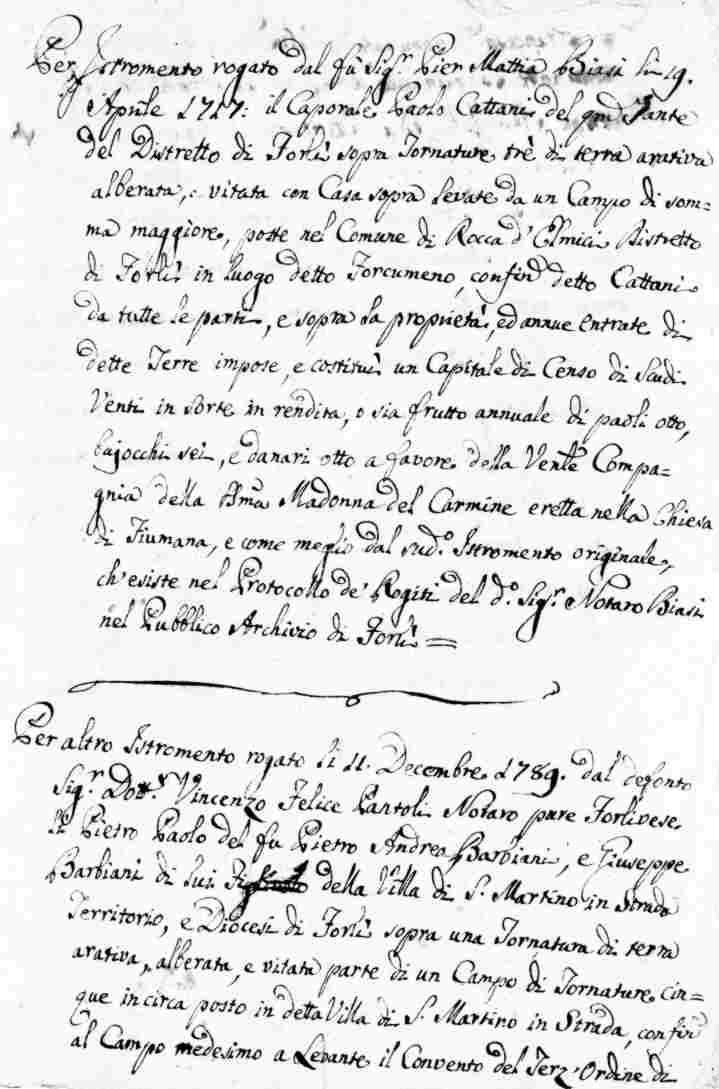 Per Istromento rogato dal fù Sig.r Pier Mattia Biasi li 19.
Aprile 1727: il Caporale Paolo Cattani del qm Sante
del Distretto di Forlì sopra Tornature trè di terra arativa
alberata, e vitata con Casa sopra levate da un Campo di som=
ma maggiore, poste nel Comune di Rocca d'Elmici Distretto
di Forlì in luogo detto Torcumeno, confind detto Cattani
da tutte le parti, e sopra la proprietà, ed annue entrate di
dette Terre impose, e costituì un Capitale di Censo di Scudi
Venti in Sorte in rendita, o sia frutto annuale di paoli otto,
bajocchi sei, e danari otto a favore della Venle Compa=
gnia della Bma Madonna del Carmine eretta nella Chiesa
di Fiumana, e come meglio dal sud.o Istromento originale,
ch'esiste nel Protocollo de' Rogiti del d.o Sig.r Notaro Biasi
nel Pubblico Archivio di Forlì =
Per altro Istromento rogato li 11. Decembre 1789. dal defonto
Sig.r Dott.r Vincenzo Felice Pantoli Notaro pure Forlivese
li Pietro Paolo del fu Pietro Andrea Barbiani, e Giuseppe
Barbiani di lui della Villa di S. Martino in Strada
Territorio, e Diocesi di Forlì sopra una Tornatura di terra
arativa, alberata, e vitata parte di un Campo di Tornature cin=
que in circa posto in detta Villa di S. Martino in Strada, confind
al Campo medesimo a Levante il Convento del Terz'Ordine di